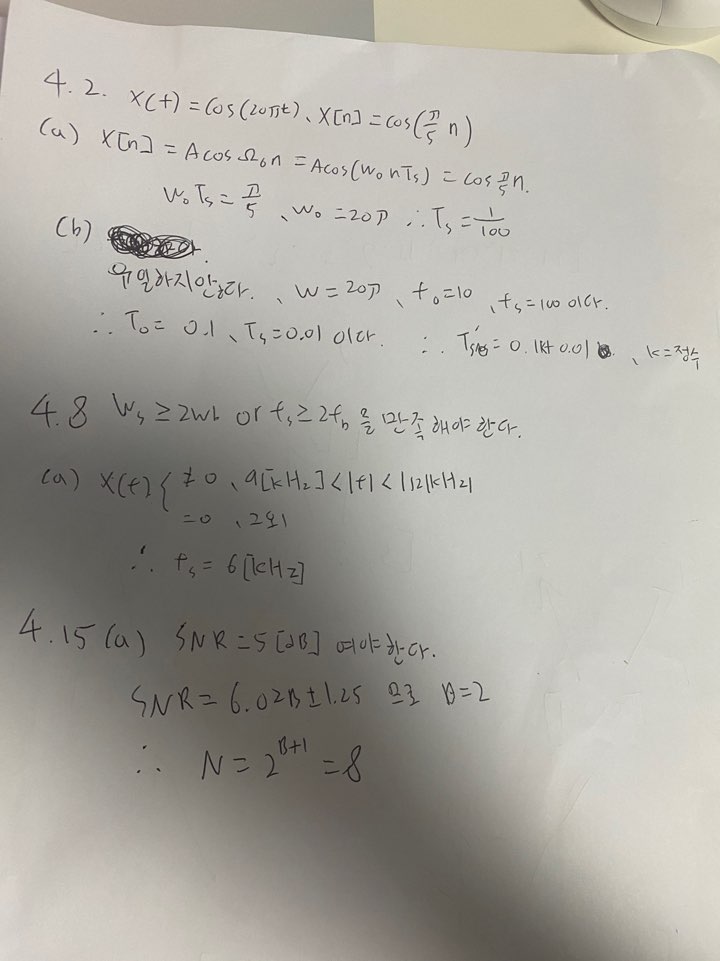 4.2. x(t) = cos(20πt)、x[n] = cos(π/5 n)
(a) x[n] = Acos Ω₀n = Acos(ω₀nTs) = cos π/5 n.
ω₀Ts = π/5 、ω₀ = 20π ∴ Ts = 1/100
(b)
유일하지않다. 、ω = 20π 、f₀ = 10 、fs = 100 이다.
∴ T₀ = 0.1 、Ts = 0.01 이다. ∴ Ts' = 0.1k + 0.01 、k = 정수
4.8 ωs ≥ 2ωb or fs ≥ 2fb 을 만족해야 한다.
(a) X(f) { ≠ 0 、9[kHz] < |f| < 12[kHz]
= 0 、그외
∴ fs = 6[kHz]
4.15 (a) SNR = 5[dB] 여야한다.
SNR = 6.02B ± 1.25 므로 B = 2
∴ N = 2^(B+1) = 8